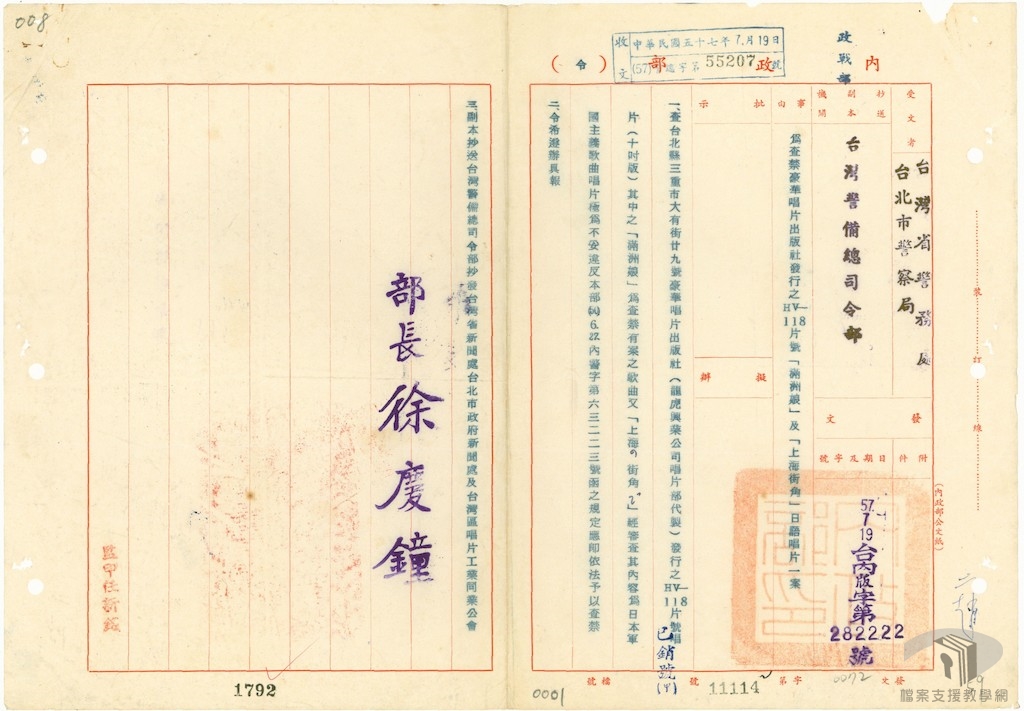 008
內政部（令）
政戰部
收文
中華民國五十七年7月19日
(57)
字第55207號
受文者
台灣省警務處
台北市警察局
抄送副本機關
台灣警備總司令部
事由
為查禁豪華唱片出版社發行之HV—118片號「滿洲娘」及「上海街角」日語唱片一案
批示
擬辦
發文
附件
日期及字號
57.7.19
台內版字第282222號
一、查台北縣三重市大有街廿九號豪華唱片出版社（龍虎興業公司唱片部代製）發行之HV—118片號唱
片（十吋版）其中之「滿洲娘」為查禁有案之歌曲又「上海の街角で」經審查其內容為日本軍
國主義歌曲唱片極為不妥違反本部
6.22.內警字第六三二二三號函之規定應即依法予以查禁
二、令希遵辦具報
三、副本抄送台灣警備總司令部抄發台灣省新聞處台北市政府新聞處及台灣區唱片工業同業公會
部長徐慶鐘
已銷號
裝
訂
線
（內政部公文紙）
發文
字第11114號
檔號
0072
0001
1792
檔案支援教學網